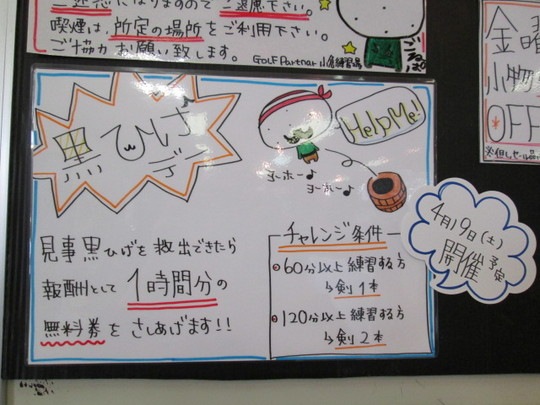 ご迷惑になりますので ご遠慮下さい。
喫煙は、所定の場所をご利用下さい。
ご協力 お願い致します。
GOLF Partner 小倉練習場
ごるぱ
金曜
小物
OFF
黒ひげデー
Help Me!
ヨーホー♪
ヨーホー♪
見事黒ひげを救出できたら
報酬として 1時間分の
無料券を さしあげます!!
チャレンジ条件
60分以上練習する方
↳剣1本
120分以上練習する方
↳剣2本
4月19日(土)
開催予定